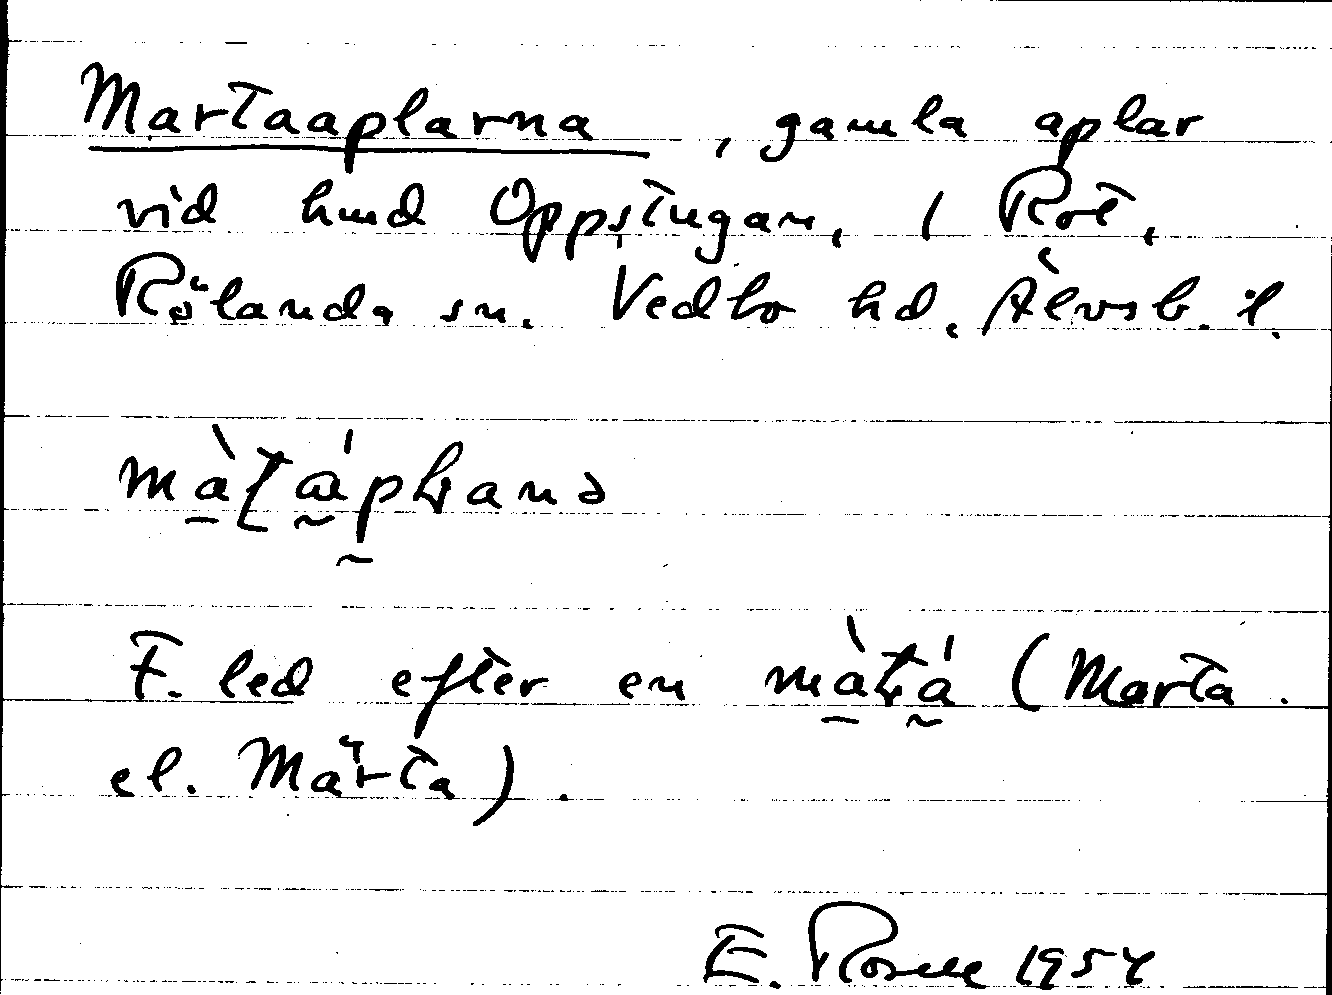 Martaaplarna, gamla aplar
vid hmd Oppstugan, 1 Röt,
Rölanda sn. Vedbo hd. Älvsb. l.
F. led efter en (Marta
el. Märta).
E. Rosell 1954